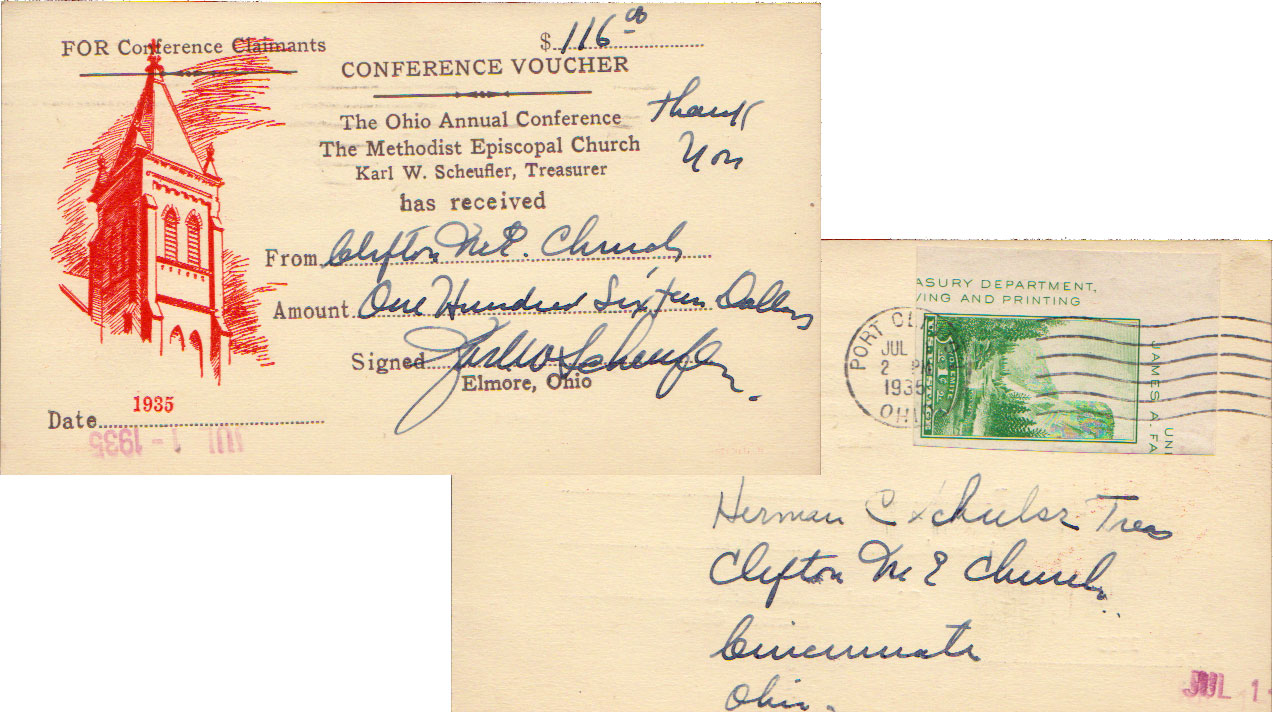 FOR Conference Claimants
$ 116 00
CONFERENCE VOUCHER
The Ohio Annual Conference
The Methodist Episcopal Church
Karl W. Scheufler, Treasurer
Thank
You
has received
From Clifton M.E. Church
Amount One Hundred Sixteen Dollars
Signed Karl W Scheufler
Elmore, Ohio
1935
Date
JUL 1 - 1935
ASURY DEPARTMENT,
VING AND PRINTING
JAMES A. FA
UNI
U.S. POSTAGE
YOSEMITE
1 C
PORT CL
JUL
2 PM
1935
OHI
Herman C Treas
Clifton M E Church
Cincinnati
Ohio.
JUL 1 -